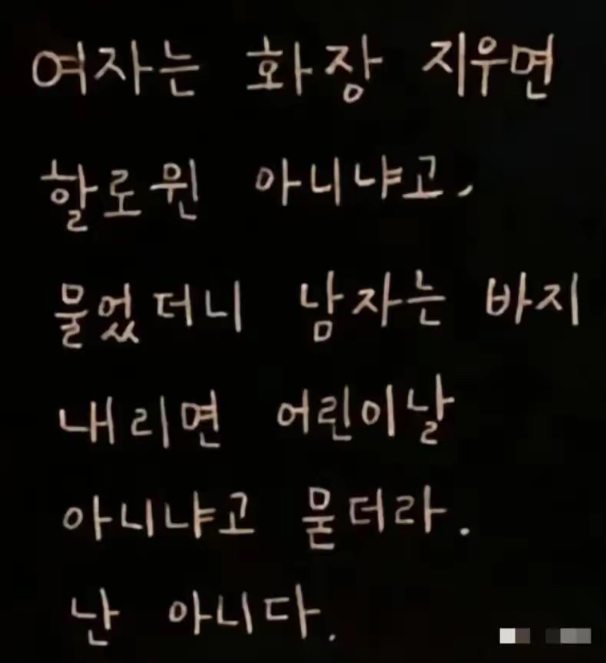 여자는 화장 지우면
할로윈 아니냐고,
물었더니 남자는 바지
내리면 어린이날
아니냐고 묻더라.
난 아니다.